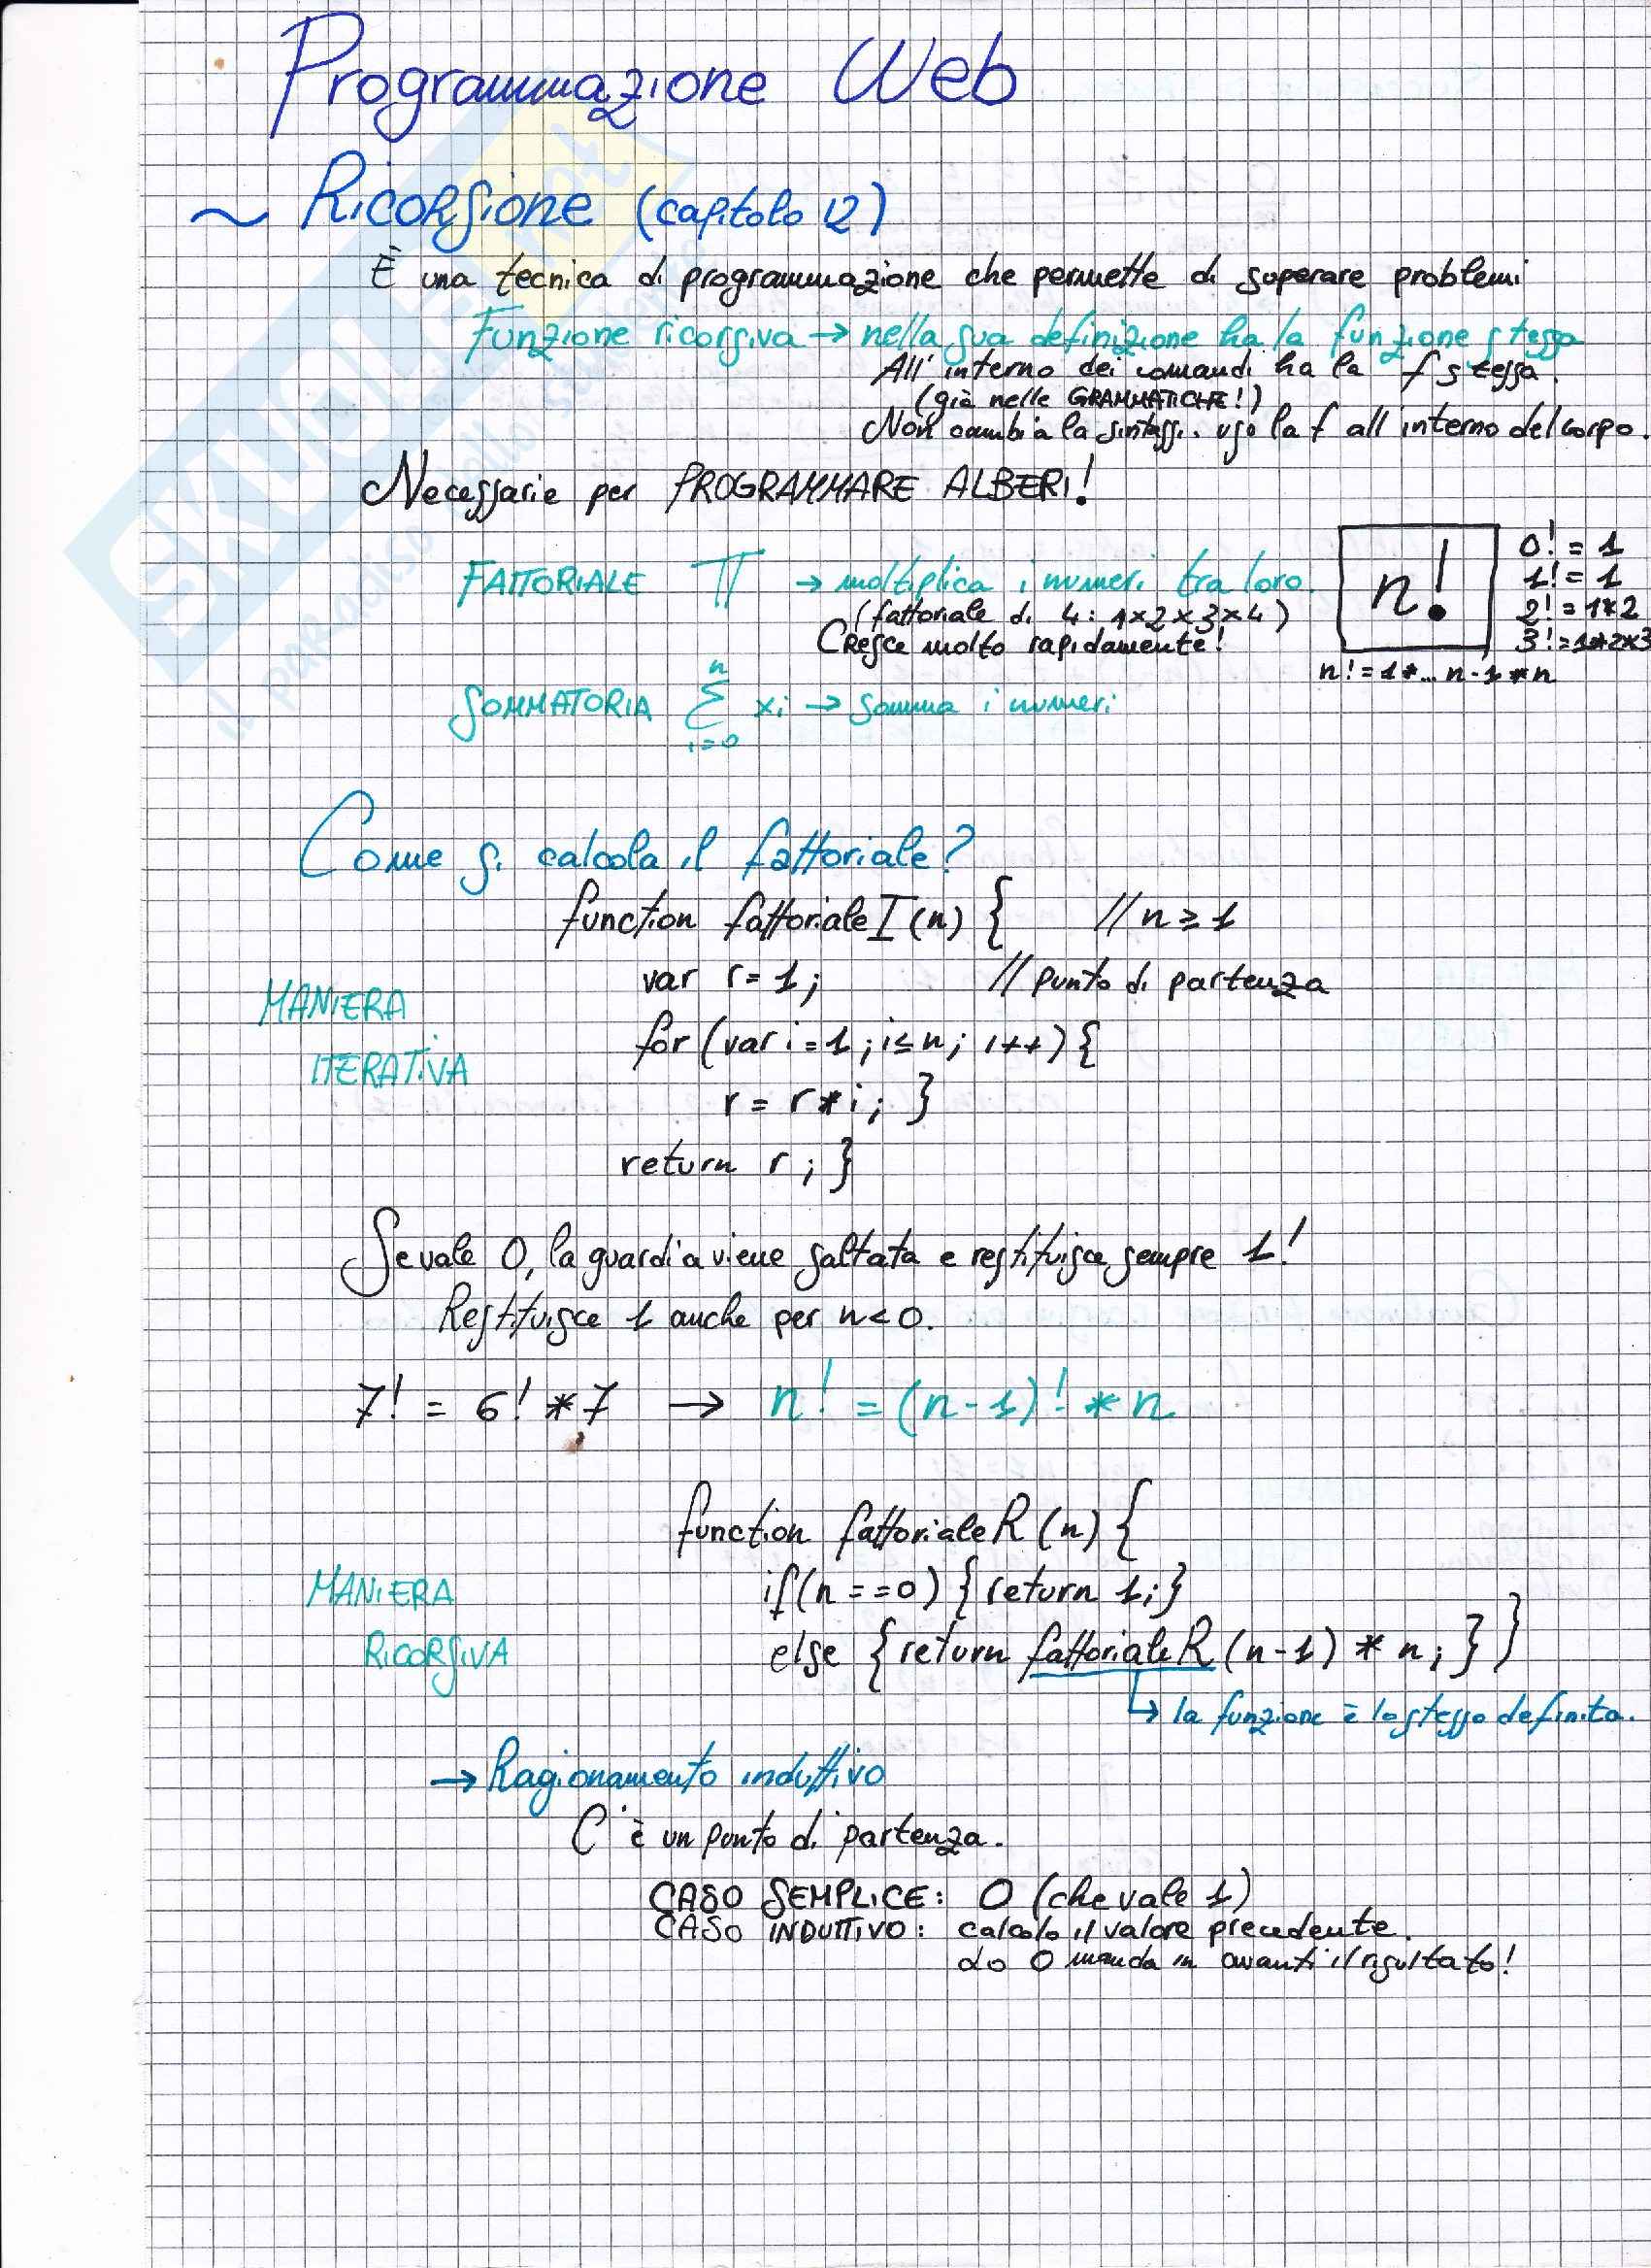 Programmazione Web
~ Ricorsione (capitolo 12)
È una tecnica di programmazione che permette di superare problemi
Funzione ricorsiva → nella sua definizione ha la funzione stessa
All'interno dei comandi ha la f stessa.
(già nelle GRAMMATICHE!)
Non cambia la sintassi. uso la f all'interno del corpo.
Necessarie per PROGRAMMARE ALBERI!
FATTORIALE ∏ → moltiplica i numeri tra loro.
(fattoriale di 4: 1×2×3×4)
Cresce molto rapidamente!
n!
0! = 1
1! = 1
2! = 1*2
3! = 1*2*3
n! = 1*... n-1 * n
SOMMATORIA n ∑ i=0 xi → somma i numeri
Come si calcola il fattoriale?
function fattorialeI (n) { // n ≥ 1
var r = 1; // punto di partenza
MANIERA
ITERATIVA
for (var i = 1; i ≤ n; i++) {
r = r * i; }
return r; }
Se vale 0, la guardia viene saltata e restituisce sempre 1!
Restituisce 1 anche per n < 0.
7! = 6! * 7 → n! = (n-1)! * n
function fattorialeR (n) {
MANIERA
RICORSIVA
if (n == 0) { return 1; }
else { return fattorialeR (n-1) * n; } }
↳ la funzione è lo stesso definita.
→ Ragionamento induttivo
C'è un punto di partenza.
CASO SEMPLICE: 0 (che vale 1)
CASO INDUTTIVO: calcolo il valore precedente.
Lo 0 manda in avanti il risultato!
SKUOLA.net
il paradiso dello studente